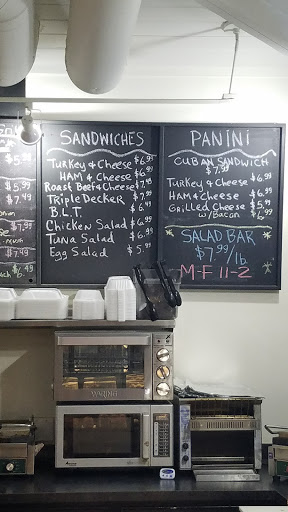 $5.99
$5.99
$7.49
$7.49
$7.49
SANDWICHES
Turkey & Cheese $6.99
HAM & Cheese $6.99
Roast Beef & Cheese $7.49
TRIPLE Decker $7.99
B.L.T. $6.99
Chicken Salad $6.99
Tuna Salad $6.99
Egg Salad $5.99
PANINI
CUBAN SANDWICH
$7.99
Turkey & Cheese $6.99
HAM & Cheese $6.99
GRilled Cheese $5.99
w/Bacon $6.99
SALAD BAR
$7.99/lb.
M-F 11-2
WARING